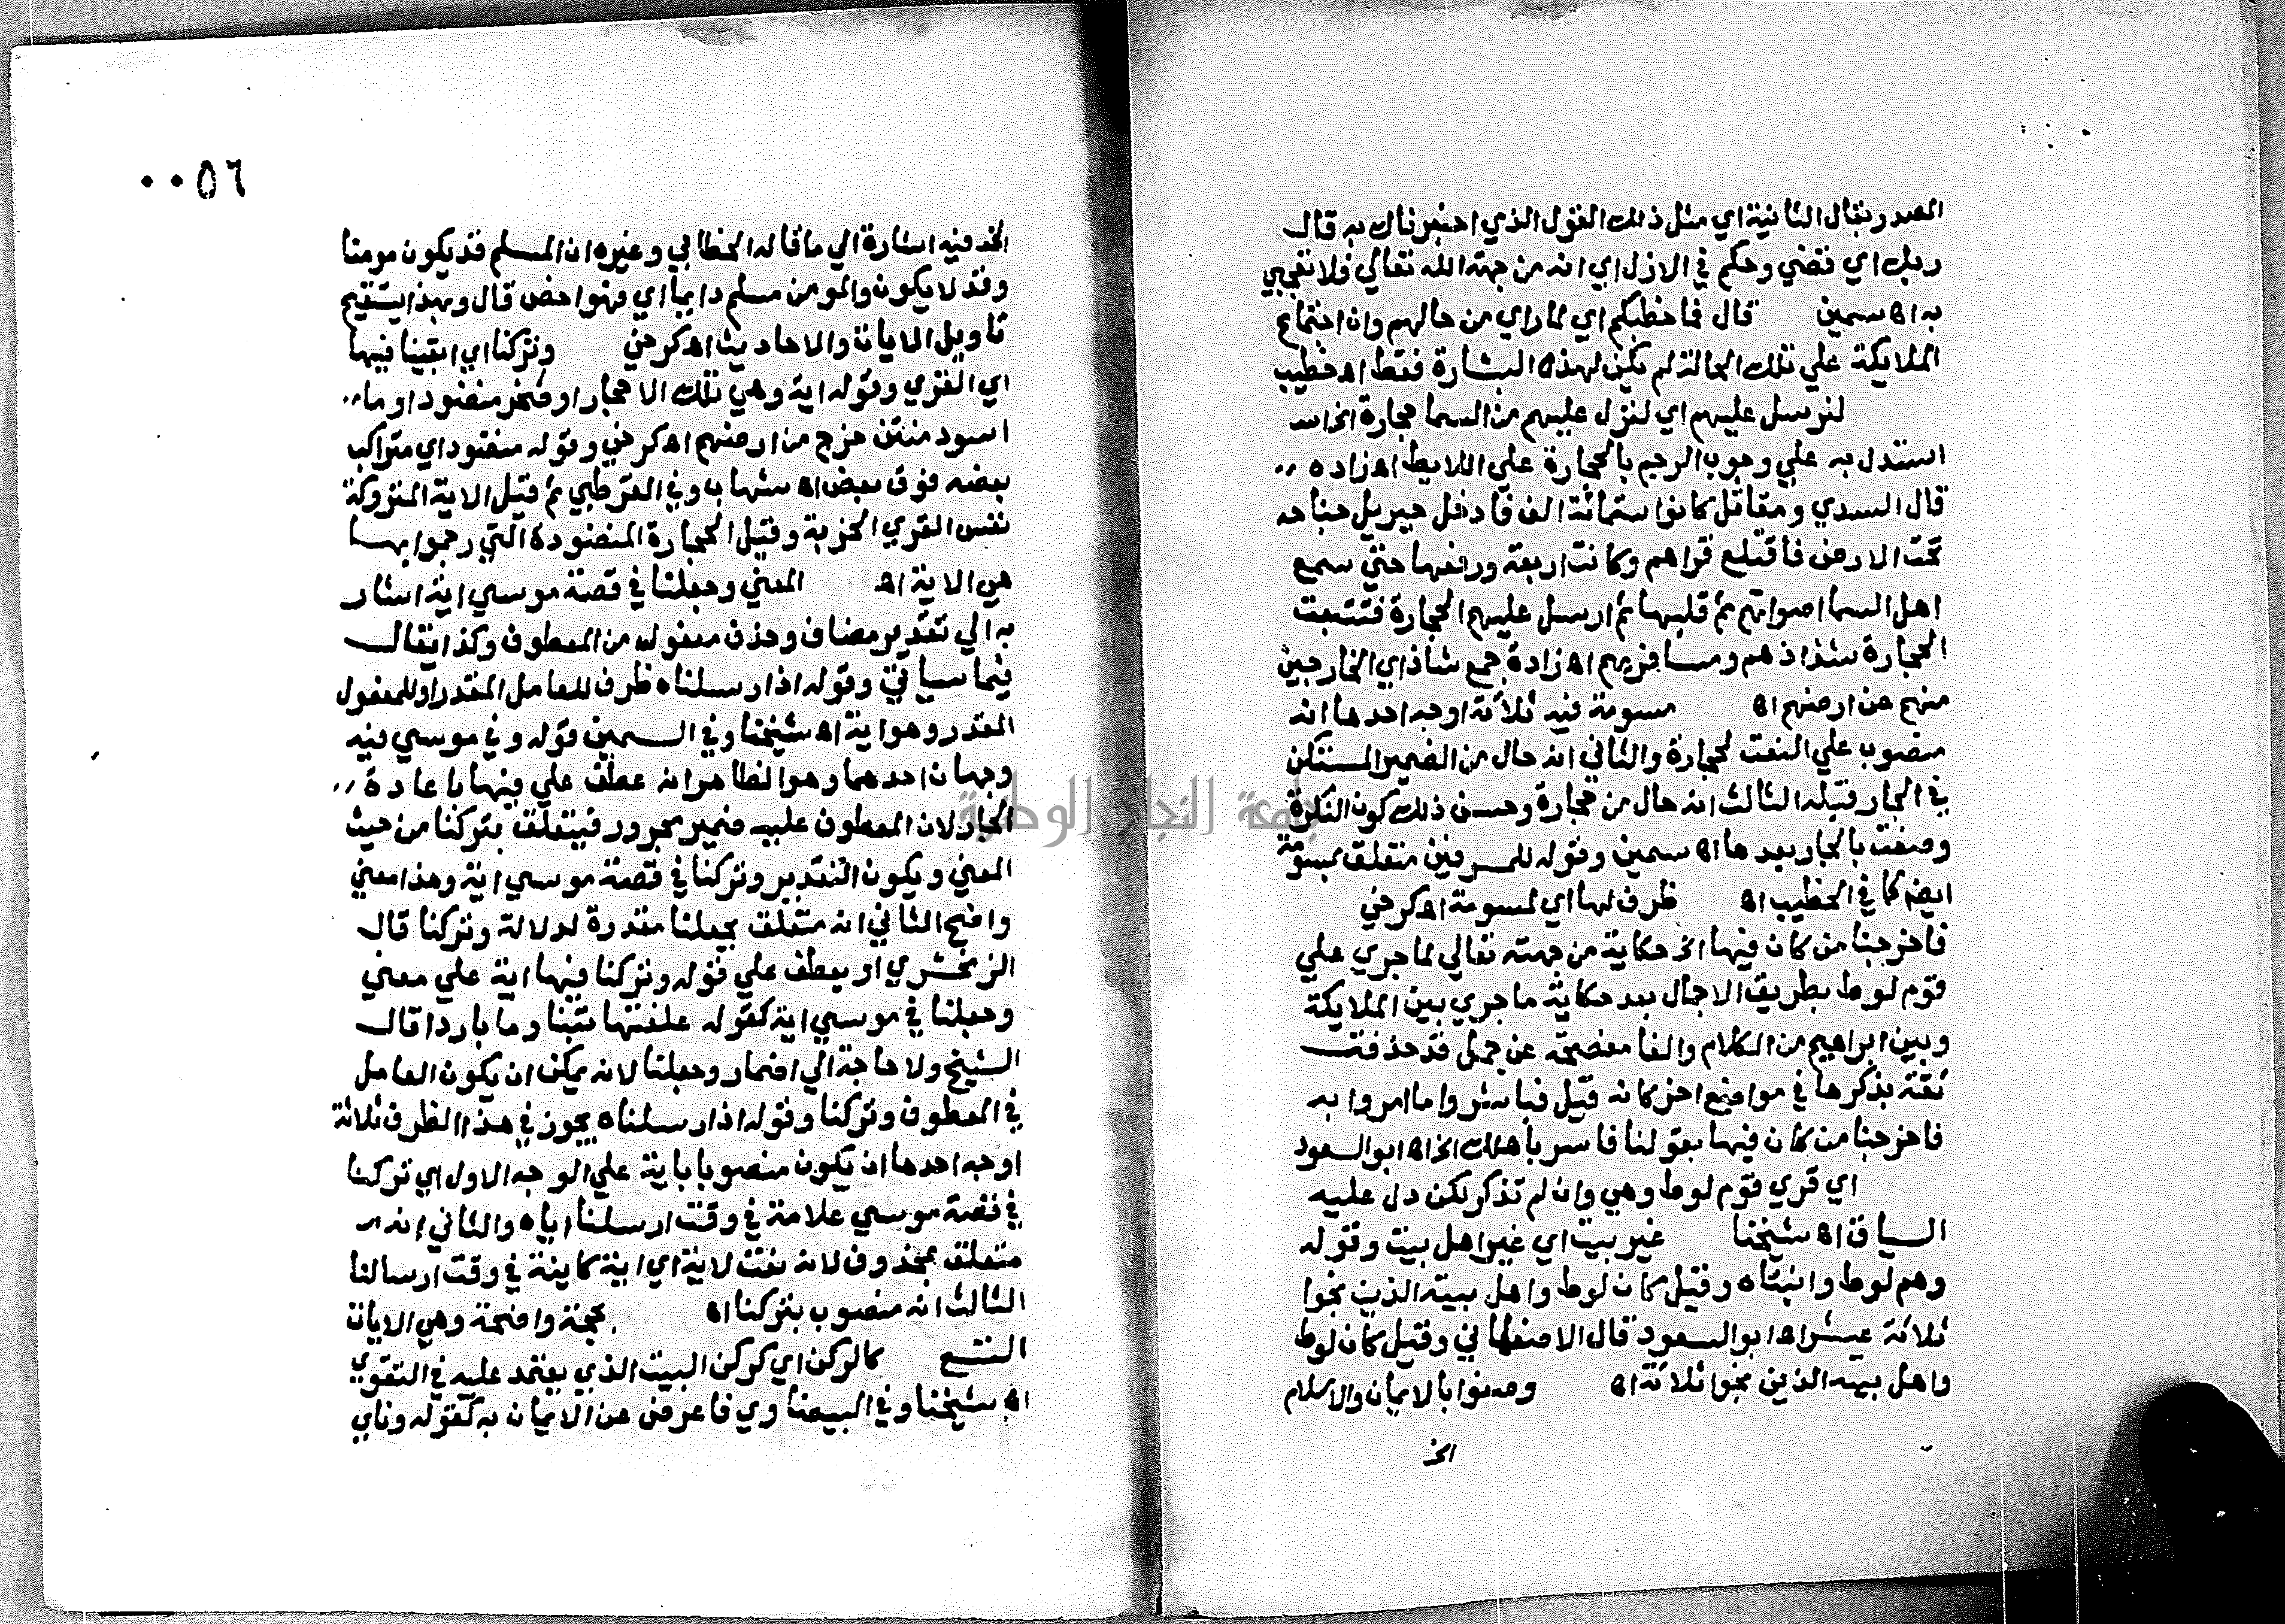 المصدر بقال الثانية اي مثل ذلك القول الذي اخبرناك به قال
ربك اي قضي وحكم في الازل اي انه من جهة الله تعالي فلا تعجبي
به اه سمين قال فما خطبكم اي لما راي من حالهم وان اجتماع
الملايكة علي تلك الحالة لم يكن لهذه البشارة فقط اه خطيب
لنرسل عليهم اي لننزل عليهم من السما حجارة الخ اس
استدل به علي وجوب الرجم بالحجارة علي اللايط اه زاده
قال السدي ومقاتل كانوا ستمائة الف فادخل جبريل جناحه
تحت الارض فاقتلع قراهم وكانت اربعة ورفعها حتي سمع
اهل السما اصواتهم ثم قلبها ثم ارسل عليهم الحجارة فتتبعت
الحجارة شذاذهم ومسافريهم اه زادة جمع شاذ اي الخارجين
منهم عن ارضهم اه مسومة فيه ثلاثة اوجه احدها انه
منصوب علي النعت لحجارة والثاني انه حال من الضمير المستكن
في الجار قبله الثالث انه حال من حجارة وحسن ذلك كون النكرة
وصفت بالجار بعدها اه سمين وقوله للمسرفين متعلق بمسومة
ايضا كما في الخطيب اه ظرف لها اي لمسومة اه كرخي
فاخرجنا من كان فيها الخ حكاية من جهته تعالي لما جري علي
قوم لوط بطريق الاجمال بعد حكاية ما جري بين الملايكة
وبين ابراهيم من الكلام والفا مفصحة عن جمل قد حذفت
ثقة بذكرها في مواضع اخر كانه قيل فباشروا ما امروا به
فاخرجنا من كان فيها بقولنا فاسر باهلك الخ اه ابو السعود
اي قري قوم لوط وهي وان لم تذكر لكن دل عليه
السياق اه شيخنا غير بيت اي غير اهل بيت وقوله
وهم لوط وابنتاه وقيل كان لوط واهل بيته الذين نجوا
ثلاثة عشر اه ابو السعود قال الاصفهاني وقيل كان لوط
واهل بيته الذين نجوا ثلاثة اه وصفوا بالايمان والاسلام
الخ
٠٠٥٦
الخ فيه اشارة الي ما قاله الخطابي وغيره ان المسلم قد يكون مومنا
وقد لا يكون والمومن مسلم دايما اي فهو اخص قال وبهذا يستقيم
تاويل الايات والاحاديث اه كرخي وتركنا اي ابقينا فيها
اي القري وقوله اية وهي تلك الاحجار او صخر منضود او ما
اسود منتن خرج من ارضهم اه كرخي وقوله منضود اي متراكب
بعضه فوق بعض اه شهاب وفي القرطبي ثم قيل الاية المتروكة
نفس القري الخربة وقيل الحجارة المنضودة التي رجموا بها
هي الاية اه المعني وجعلنا في قصة موسي اية اشار
به الي تقدير مضاف وحذف مفعوله من المعطوف وكذا يقال
فيما سياتي وقوله اذ ارسلناه ظرف للعامل المقدر او للمفعول
المقدر وهو اية اه شيخنا وفي السمين قوله وفي موسي فيه
وجهان احدهما وهو الظاهر انه عطف علي فيها باعادة
الجار لان المعطوف عليه ضمير مجرور فيتعلق بتركنا من حيث
المعني ويكون التقدير وتركنا في قصة موسي اية وهذا معني
واضح الثاني انه متعلق بجعلنا مقدرة لدلالة وتركنا قال
الزمخشري او يعطف علي قوله وتركنا فيها اية علي معني
وجعلنا في موسي اية كقوله علفتها تبنا وما باردا قال
الشيخ ولا حاجة الي اضمار وجعلنا لانه يمكن ان يكون العامل
في المعطوف وتركنا وقوله اذ ارسلناه يجوز في هذا الظرف ثلاثة
اوجه احدها ان يكون منصوبا باية علي الوجه الاول اي تركنا
في قصة موسي علامة في وقت ارسلنا اياه والثاني انه
متعلق بمحذوف لانه نعت لاية اي اية كاينة في وقت ارسالنا
الثالث انه منصوب بتركنا اه بحجة واضحة وهي الايات
التسع كالركن اي كركن البيت الذي يعتمد عليه في التقوي
اه شيخنا وفي البيضاوي فاعرض عن الايمان به كقوله وناي
جامعة النجاح الوطنية